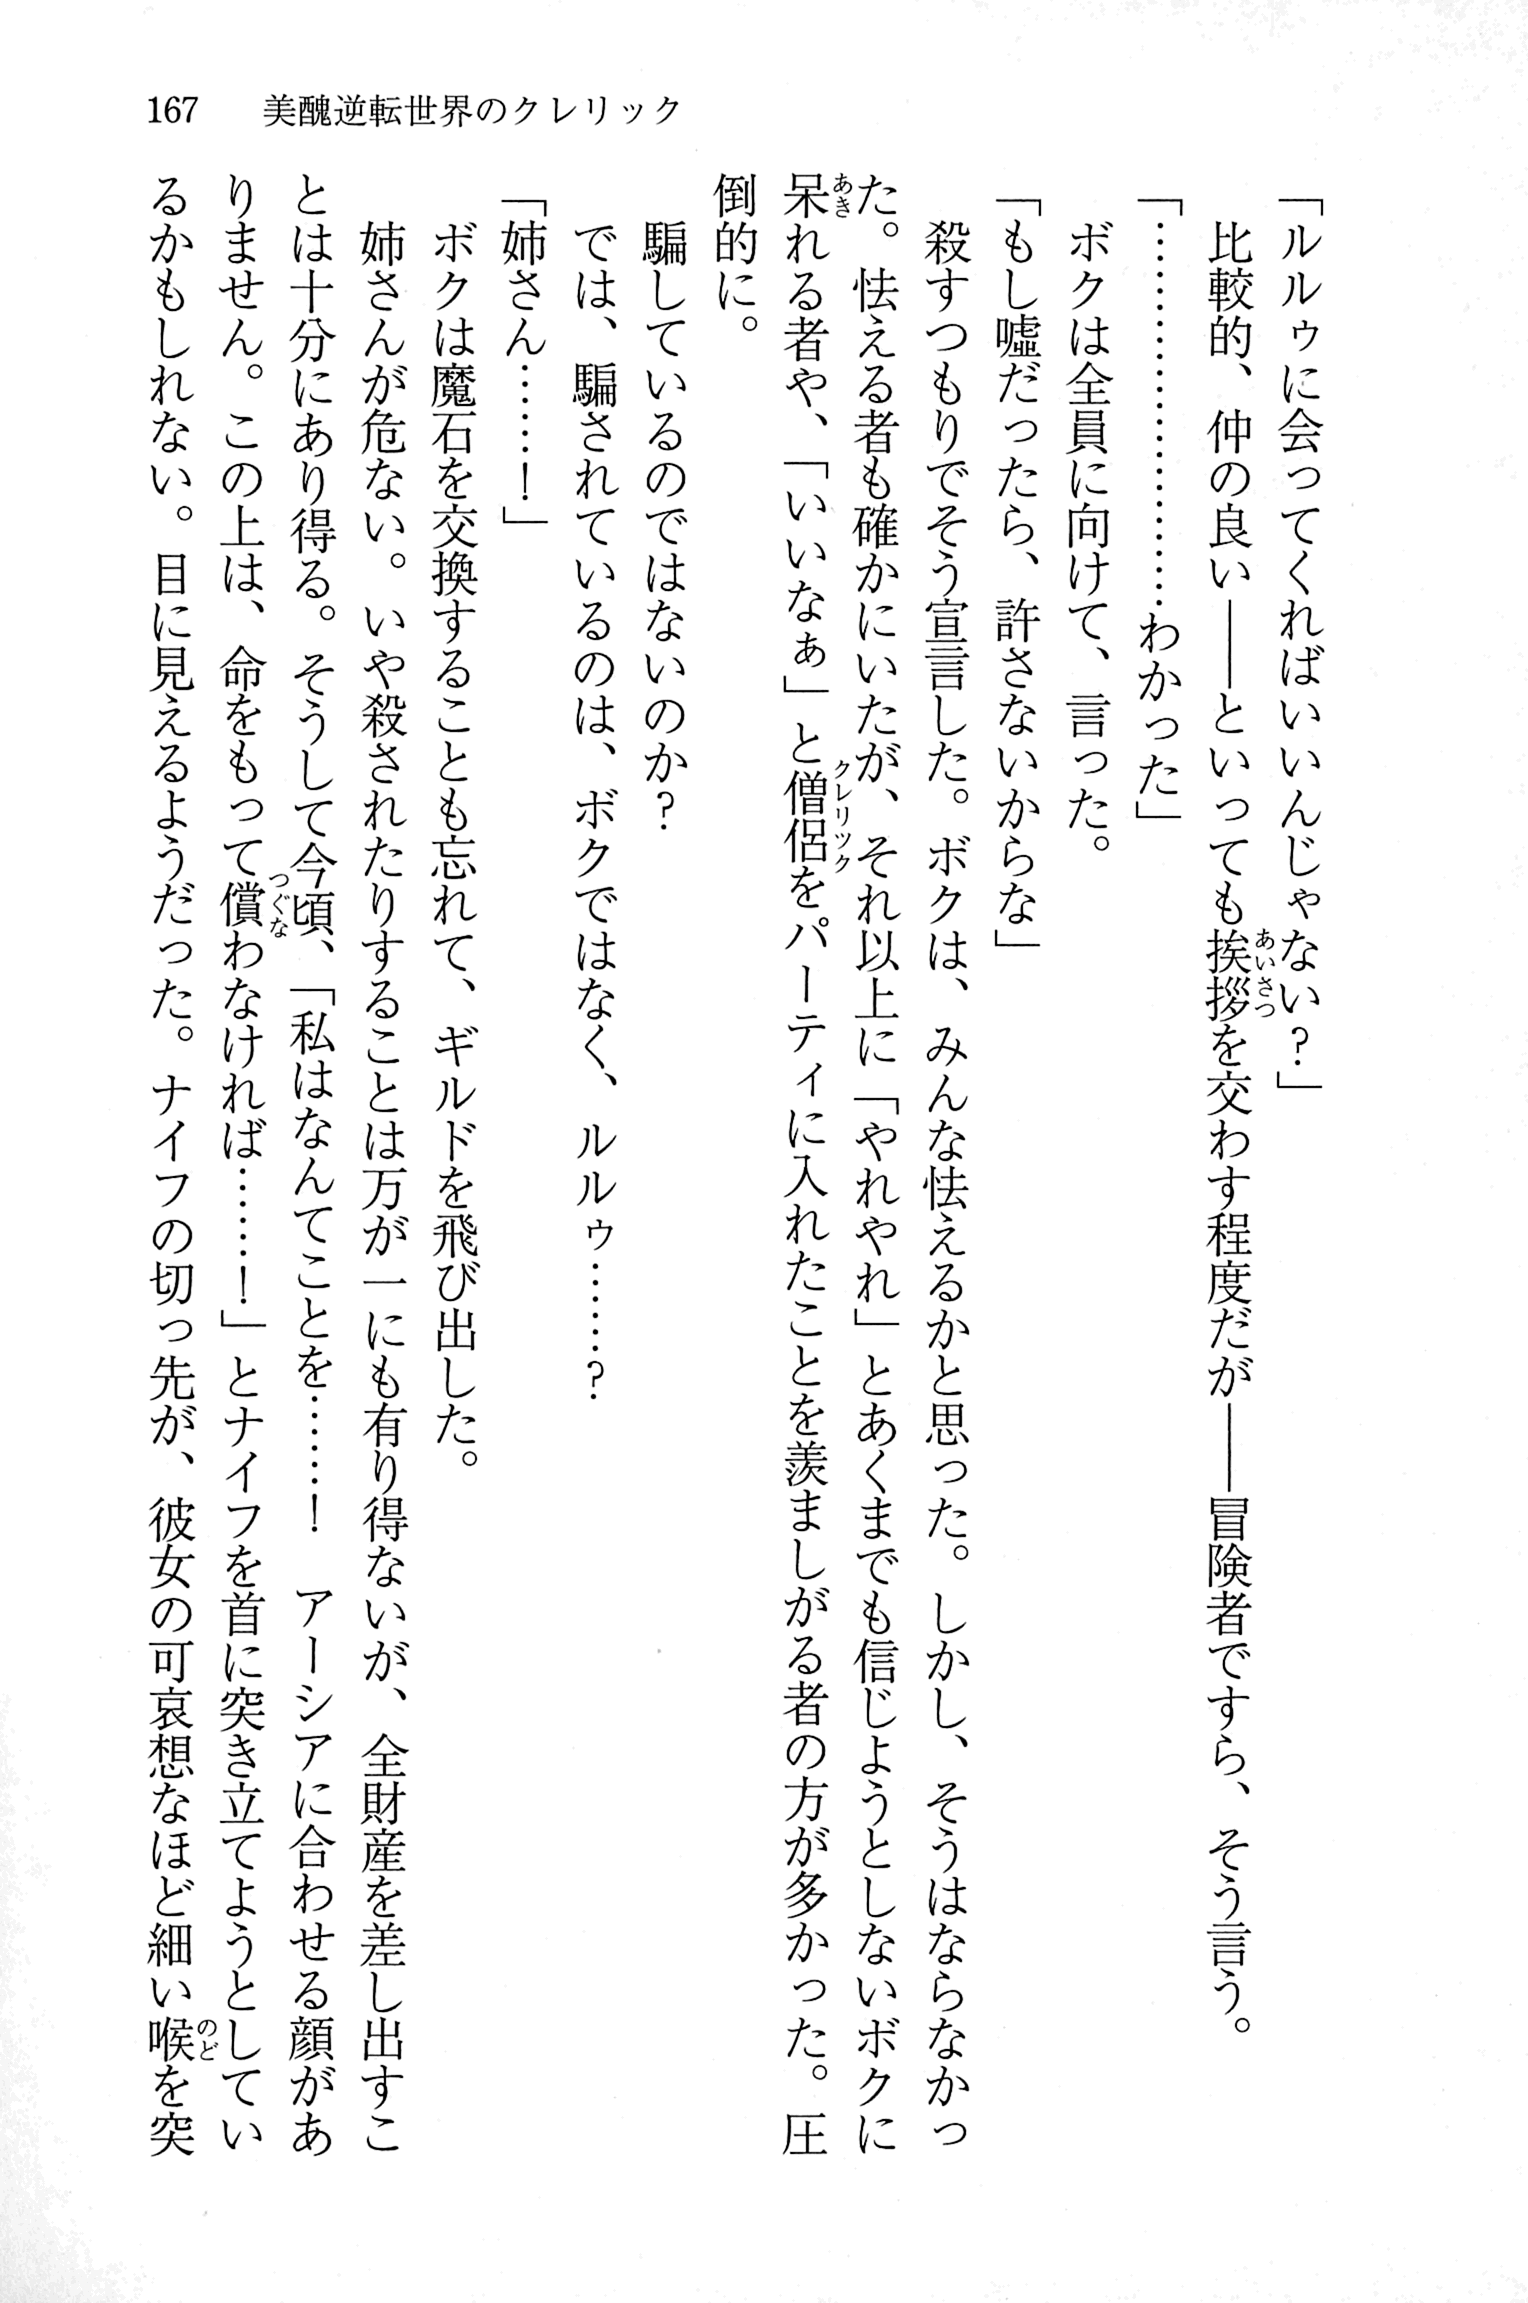 167 美醜逆転世界のクレリック
「ルルゥに会ってくればいいんじゃない？」
比較的、仲の良い――といっても挨拶を交わす程度だが――冒険者ですら、そう言う。
「………………………わかった」
ボクは全員に向けて、言った。
「もし嘘だったら、許さないからな」
殺すつもりでそう宣言した。ボクは、みんな怯えるかと思った。しかし、そうはならなかっ
た。怯える者も確かにいたが、それ以上に「やれやれ」とあくまでも信じようとしないボクに
呆れる者や、「いいなぁ」と僧侶をパーティに入れたことを羨ましがる者の方が多かった。圧
倒的に。
騙しているのではないのか？
では、騙されているのは、ボクではなく、ルルゥ……？
「姉さん……！」
ボクは魔石を交換することも忘れて、ギルドを飛び出した。
姉さんが危ない。いや殺されたりすることは万が一にも有り得ないが、全財産を差し出すこ
とは十分にあり得る。そうして今頃、「私はなんてことを……！　アーシアに合わせる顔があ
りません。この上は、命をもって償わなければ……！」とナイフを首に突き立てようとしてい
るかもしれない。目に見えるようだった。ナイフの切っ先が、彼女の可哀想なほど細い喉を突